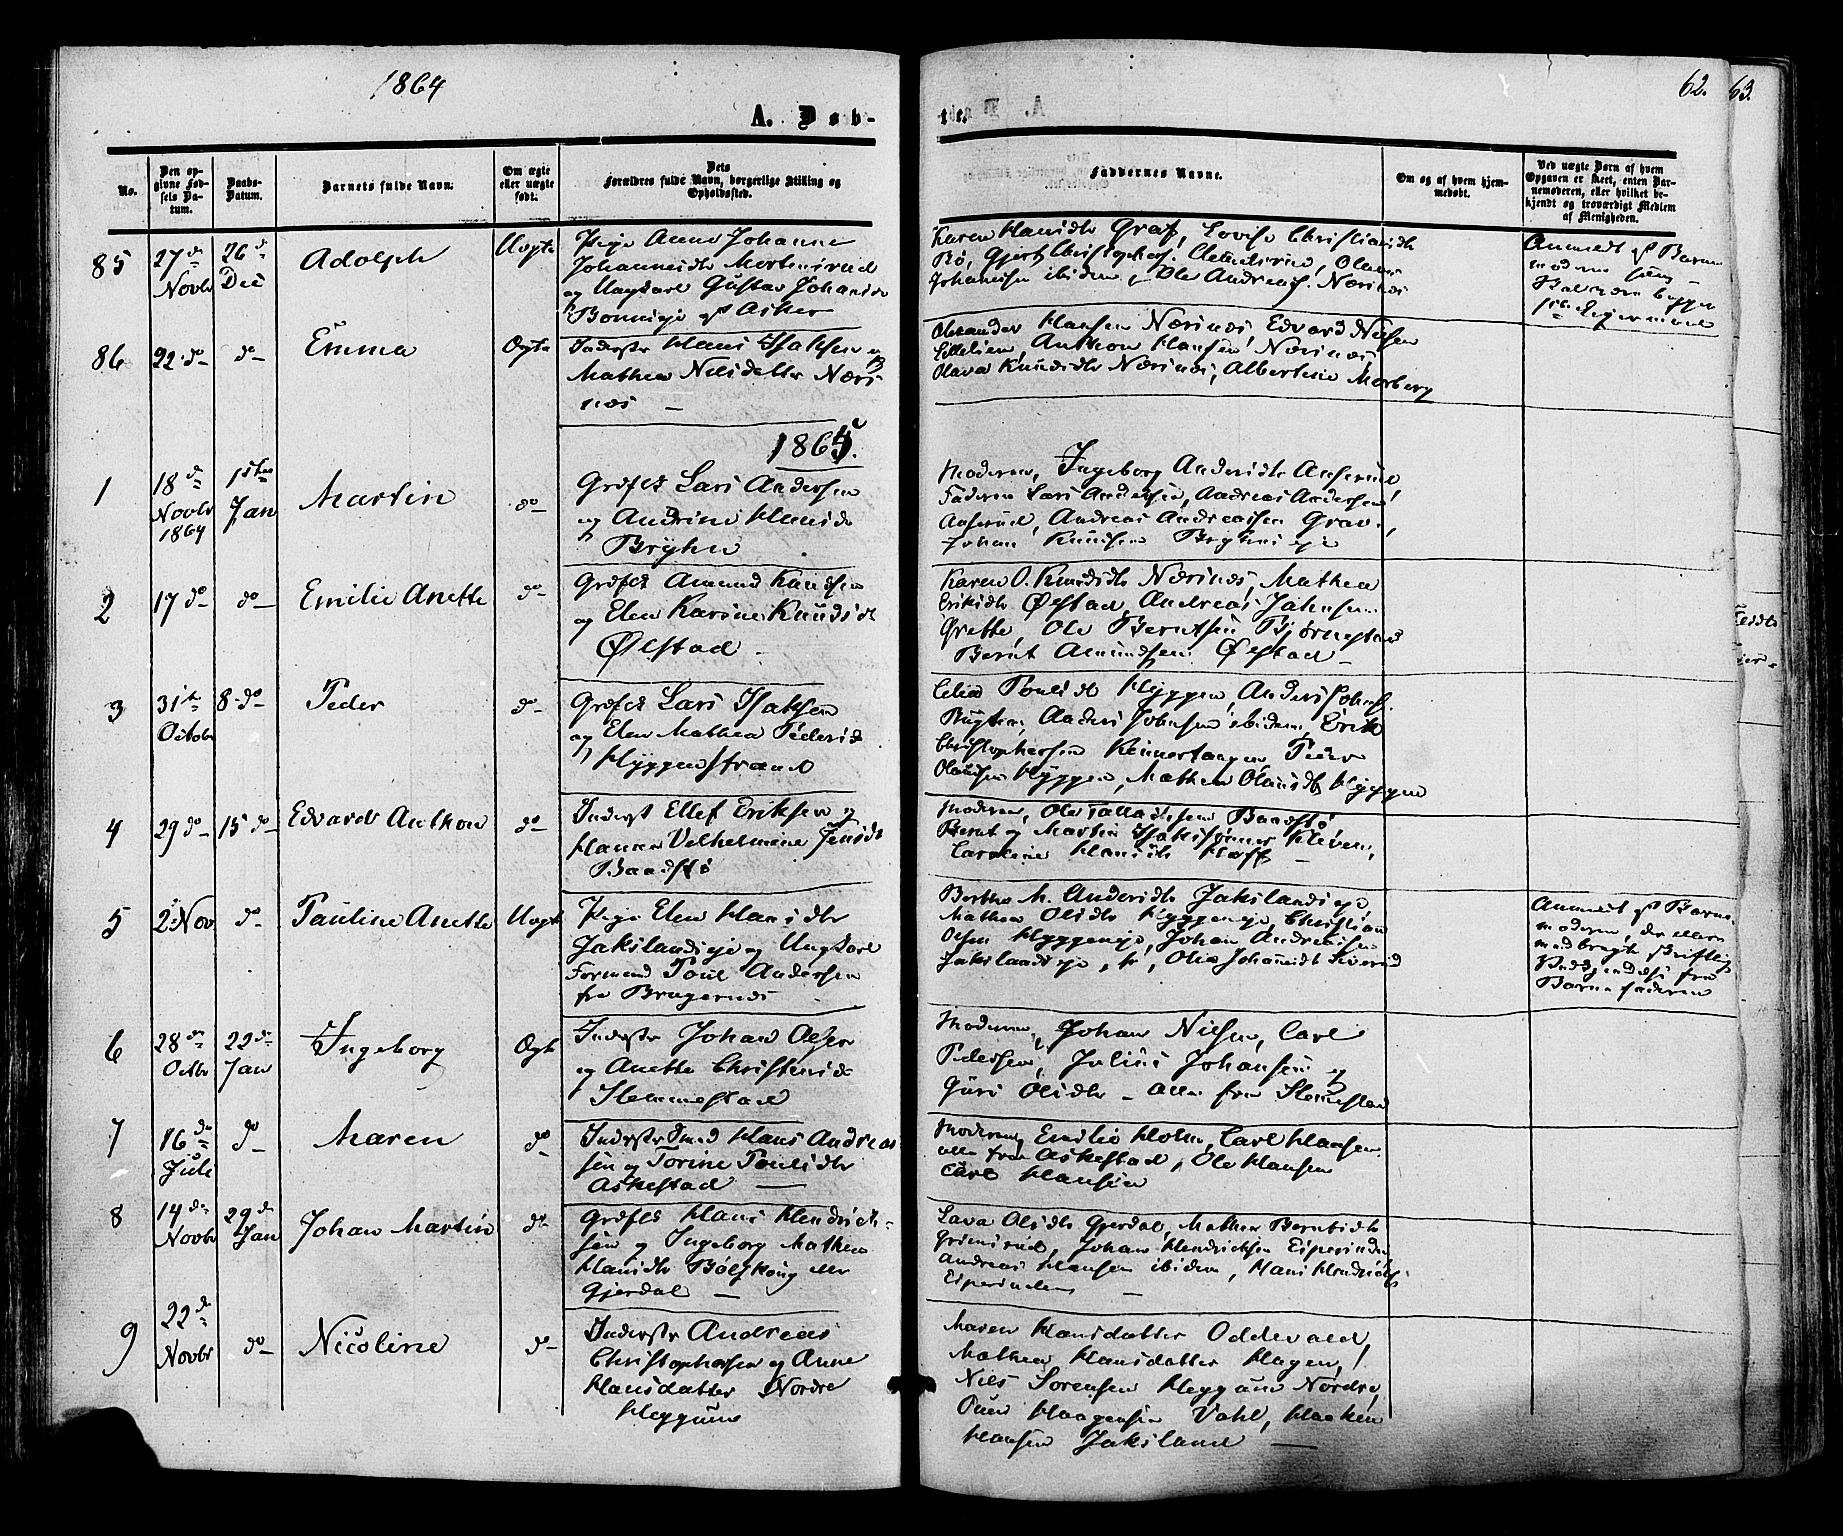 1864
62.
63.
A. Døb-
te.
No.
Den op-
givne Fød-
sels Da-
tum.
Daabs-
Datum.
Barnets fulde Navn.
Om ægte
eller uægte
født.
Dets
Forældres fulde Navn, borgerlige Stilling og
Opholdssted.
Faddernes Navne.
Om og af hvem hjem-
medøbt.
Ved uægte Børn af hvem
Opgaven er skeet, enten Bar-
nemoderen, eller hvilket be-
kjendt og troværdigt Medlem
af Menigheden.
85
27 d
Novbr
26 d
Dec
Adolph
Uægte
Pige Anne Johanne
Johannesdtr Mortensrud
og Ungkarl Gustav Johansen
Asker
Karen Hansdtr Graf, Lovise Christiansdtr
Bø, Gjert Christophers. Olaus
Johannesen ibidem, Ole Andreas. Næsnæs
Anmeldt af Barne
moderen
86
22 do
do
Emma
Ægte
Inderst Hans Isaksen og
Mathea Nilsdatter Nærs
næs
Alexander Hansen Nærsnæs Edvard Nilsen
Anthon Hansen Nærsnæs
Olava Knudsdtr Nærsnæs, Albertine Morberg
1865.
1
18 d
Novbr
1864
1ste
Jan
Martin
do
Grdfld Lars Andersen
og Andrine Hansdtr
Bryhn
Moderen, Ingeborg Andersdtr Aaserud,
Faderen Lars Andersen, Andreas Andersen
Aaserud, Andreas Andreassen Grav,
Johan Knudsen
2
17 do
do
Emilie Anette
do
Grdfld Amund Knudsen
og Elen Karine Knudsdtr
Ølstad
Karen O. Knudsdtr Nærsnæs, Mathea
Eriksdtr Ølstad, Andreas Johnsen
Grette, Ole Berntsen Bjørnestad
Bernt Amundsen Ølstad
3
31te
October
8 do
Peder
do
Grdfld Lars Isaksen
og Elen Mathea Pedersdtr
Hyggenstrand
Poulsdtr Hyggen, Anders Johns.
Anders Johnsen ibidem, Erik
Christophersen Kinnertangen, Peder
Olausen Hyggen, Mathea Olausdtr Hyggen
4
29 do
15 do
Edvard Anthon
do
Inderst Ellef Eriksen og
Hanna Velhelmine Jensdtr
Baadstø
Moderen, Ole Baadstø
Bernt og Martin Isakssønner Kleven,
Caroline Hansdtr Hoff
5
2 Nov
do
Pauline Anette
Uægte
Pige Elen Hansdtr
Jakslandseje og Ungkarl
Formand Poul Andersen
fra Bragernæs
Berthe M. Andersdtr Jakslandseje
Mathea Olsdtr Hyggeneje, Christian
Olsen Hyggeneje, Johan Andreasen
Jakslandseje, Olia Johannesdt
Anmeldt af Barne
moderen, der ellers
medbragte Skriftlig
fra
Barnefaderen
6
28 de
Octbr
22 de
Jan
Ingeborg
Ægte
Inderst Johan Olsen
og Anette Christensdtr
Slemmestad
Moderen, Johan Nilsen, Carl
Pedersen, Julius Johansen og
Guri Olsdtr - alle fra Slemmestad
7
16 de
Juli
do
Maren
do
Inderst Smed Hans Andreas
sen og Torine Poulsdtr
Askestad
Moderen, Emilie Holm, Carl Hansen
alle fra Askestad, Ole Hansen
Carl Hansen
8
14 de
Novbr
29 de
Jan
Johan Martin
do
Grdfld Hans Hendrik-
sen og Ingeborg Mathea
Hansdtr Bølstkong eller
Gjerdal
Lava Olsdtr Gjerdal, Mathea Berntsdtr
Grimsrud, Johan Hendricksen Espevinden
Andreas Hansen ibidem, Hans Hendriks
9
22 de
Novbr
do
Nicoline
do
Inderst Andreas
Christophersen og Anne
Hansdatter Nordre
Heggum
Maren Hansdatter Oddevald,
Mathea Hansdatter Hagen,
Nils Sørensen Heggum Nordre,
Haagensen Dahl, Haaken
Hansen Jaksland